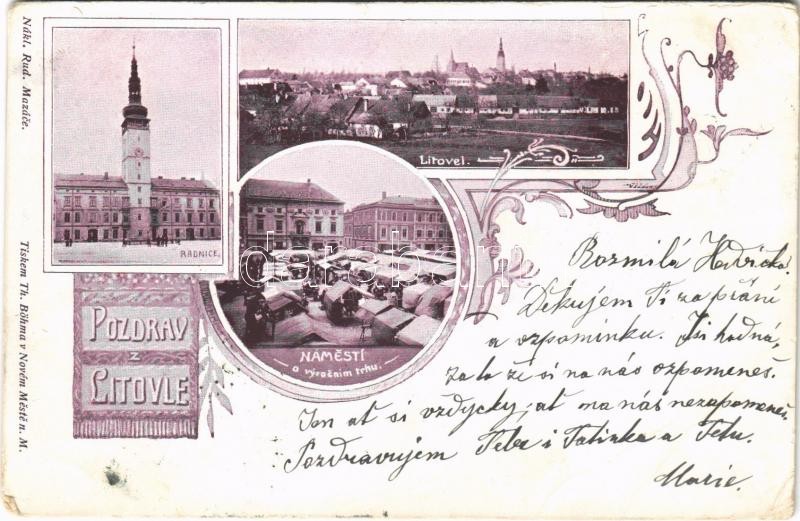 Nákl. Rud. Mazáče.
Tiskem Th. Böhma v Novém Městě n. M.
RADNICE.
Litovel.
NÁMĚSTÍ
o výročním trhu.
POZDRAV
z
LITOVLE
darabanth
Rozmilá
Děkujem Ti za přání
a vzpomínku. Jsi hodná,
za to že si na nás vzpomeneš.
Jen ať si vždycky, ať na nás nezapomeneš.
Pozdravujem Tebe i Tatínka a Tetu.
Marie.